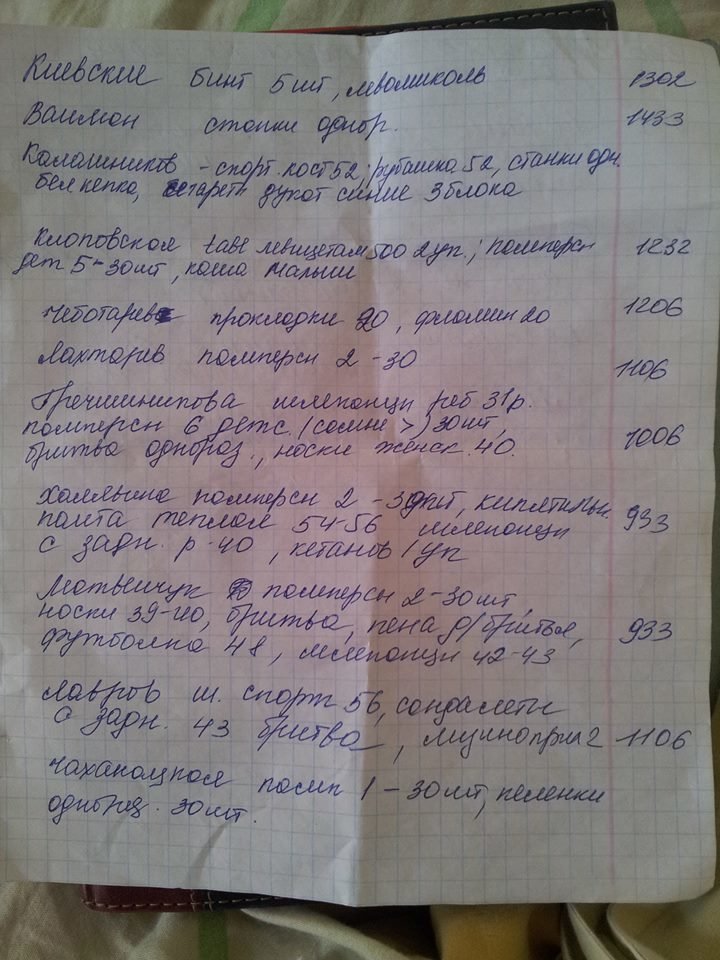 Киевские бинт 5 шт, левомиколь 1302
Ваиман станки однор. 1433
Калашников - спорт. кост 52, рубашка 52, станки одн.
бел кепка, сигареты дукат синие 3 блока
Клоповская tabl левицетам 500 2 уп., памперсы 1232
дет 5 - 30 шт, каша Малыш
Чеботарев прокладки 20, фломин 20 1206
Лахтарев памперсы 2 - 30 1106
Гречишникова шлепанцы реб 31 р.
памперсы 6 детс. (самые >) 30 шт,
бритва однораз., носки женск. 40. 1006
памперсы 2 - 30 шт, кипятильн.
теплая 54-56 шлепанцы 933
с задн. р-40, кетанов 1 уп
Матвийчук памперсы 2-30 шт
носки 39-40, бритва, пена д/бритья,
футболка 48, шлепанцы 42-43 933
Лавров ш. спорт 56, сандалеты
с задн. 43 бритва, лизиноприл 2 1106
памп 1 - 30 шт, пеленки
однораз. 30 шт.